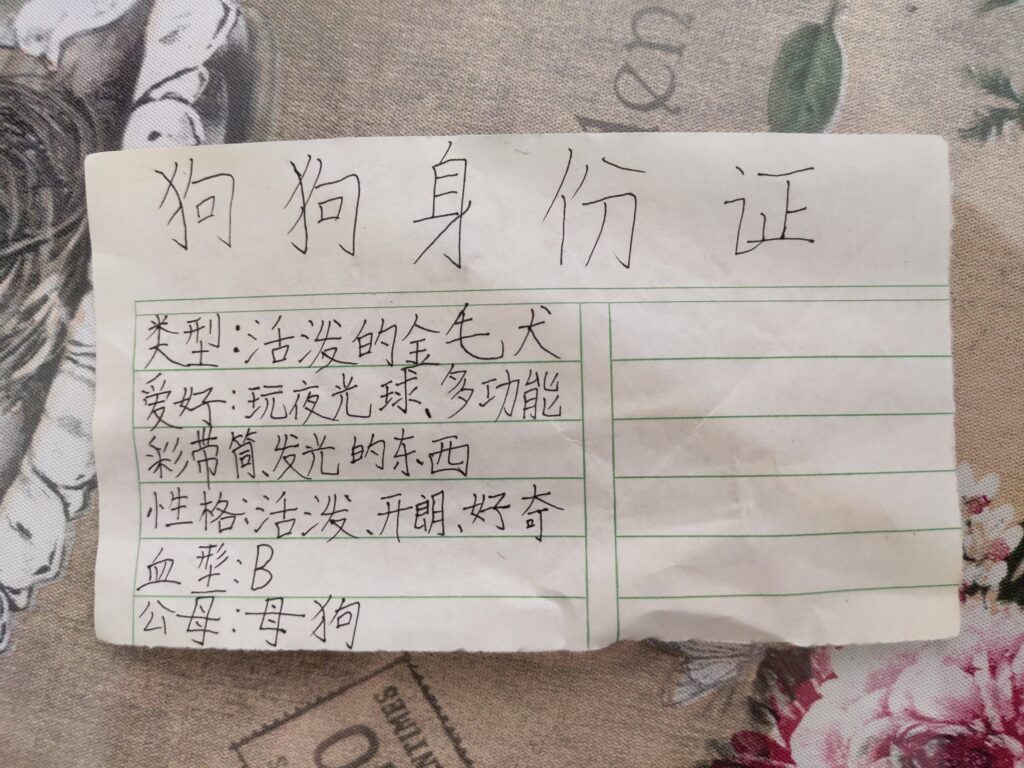 len
狗狗身份证
类型:活泼的金毛犬
爱好:玩夜光球、多功能
彩带筒、发光的东西
性格:活泼、开朗、好奇
血型:B
公母:母狗
ENTIMES